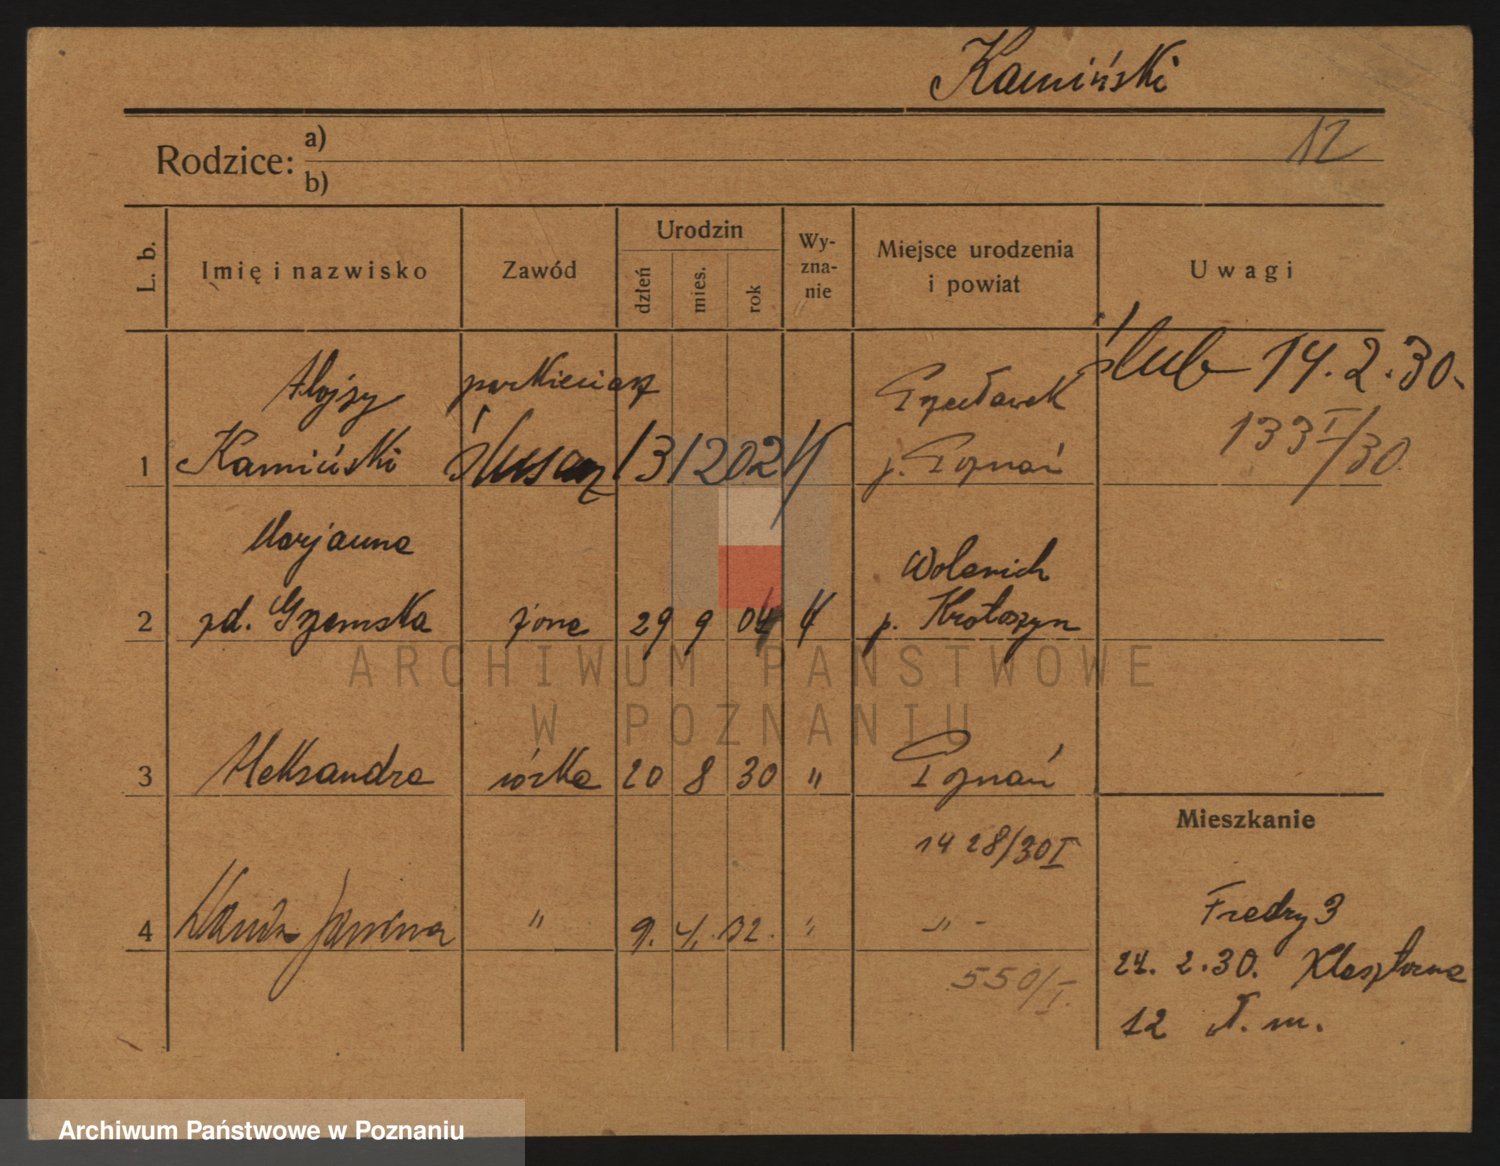 Kamiński
12
Rodzice: a)
b)
L. b. Imię i nazwisko Zawód Urodzin dzień mies. rok Wy-zna-nie Miejsce urodzenia i powiat Uwagi
Alojzy ślub 14.2.30.
1 Kamiński ślusarz 13 12 02 p. Poznań 133 I/30.
Marjanna
2 zd. Gzemska żona 29 9 04 p. Krotoszyn
3 Aleksandra córka 20 8 30 " Poznań
Mieszkanie
1428/30 I
Fredry 3
4 Wanda Janina " 9. 4. 32. " " -
24. 2.30. Klasztorna
550/I.
12 w. m.
ARCHIWUM PAŃSTWOWE
W POZNANIU
Archiwum Państwowe w Poznaniu